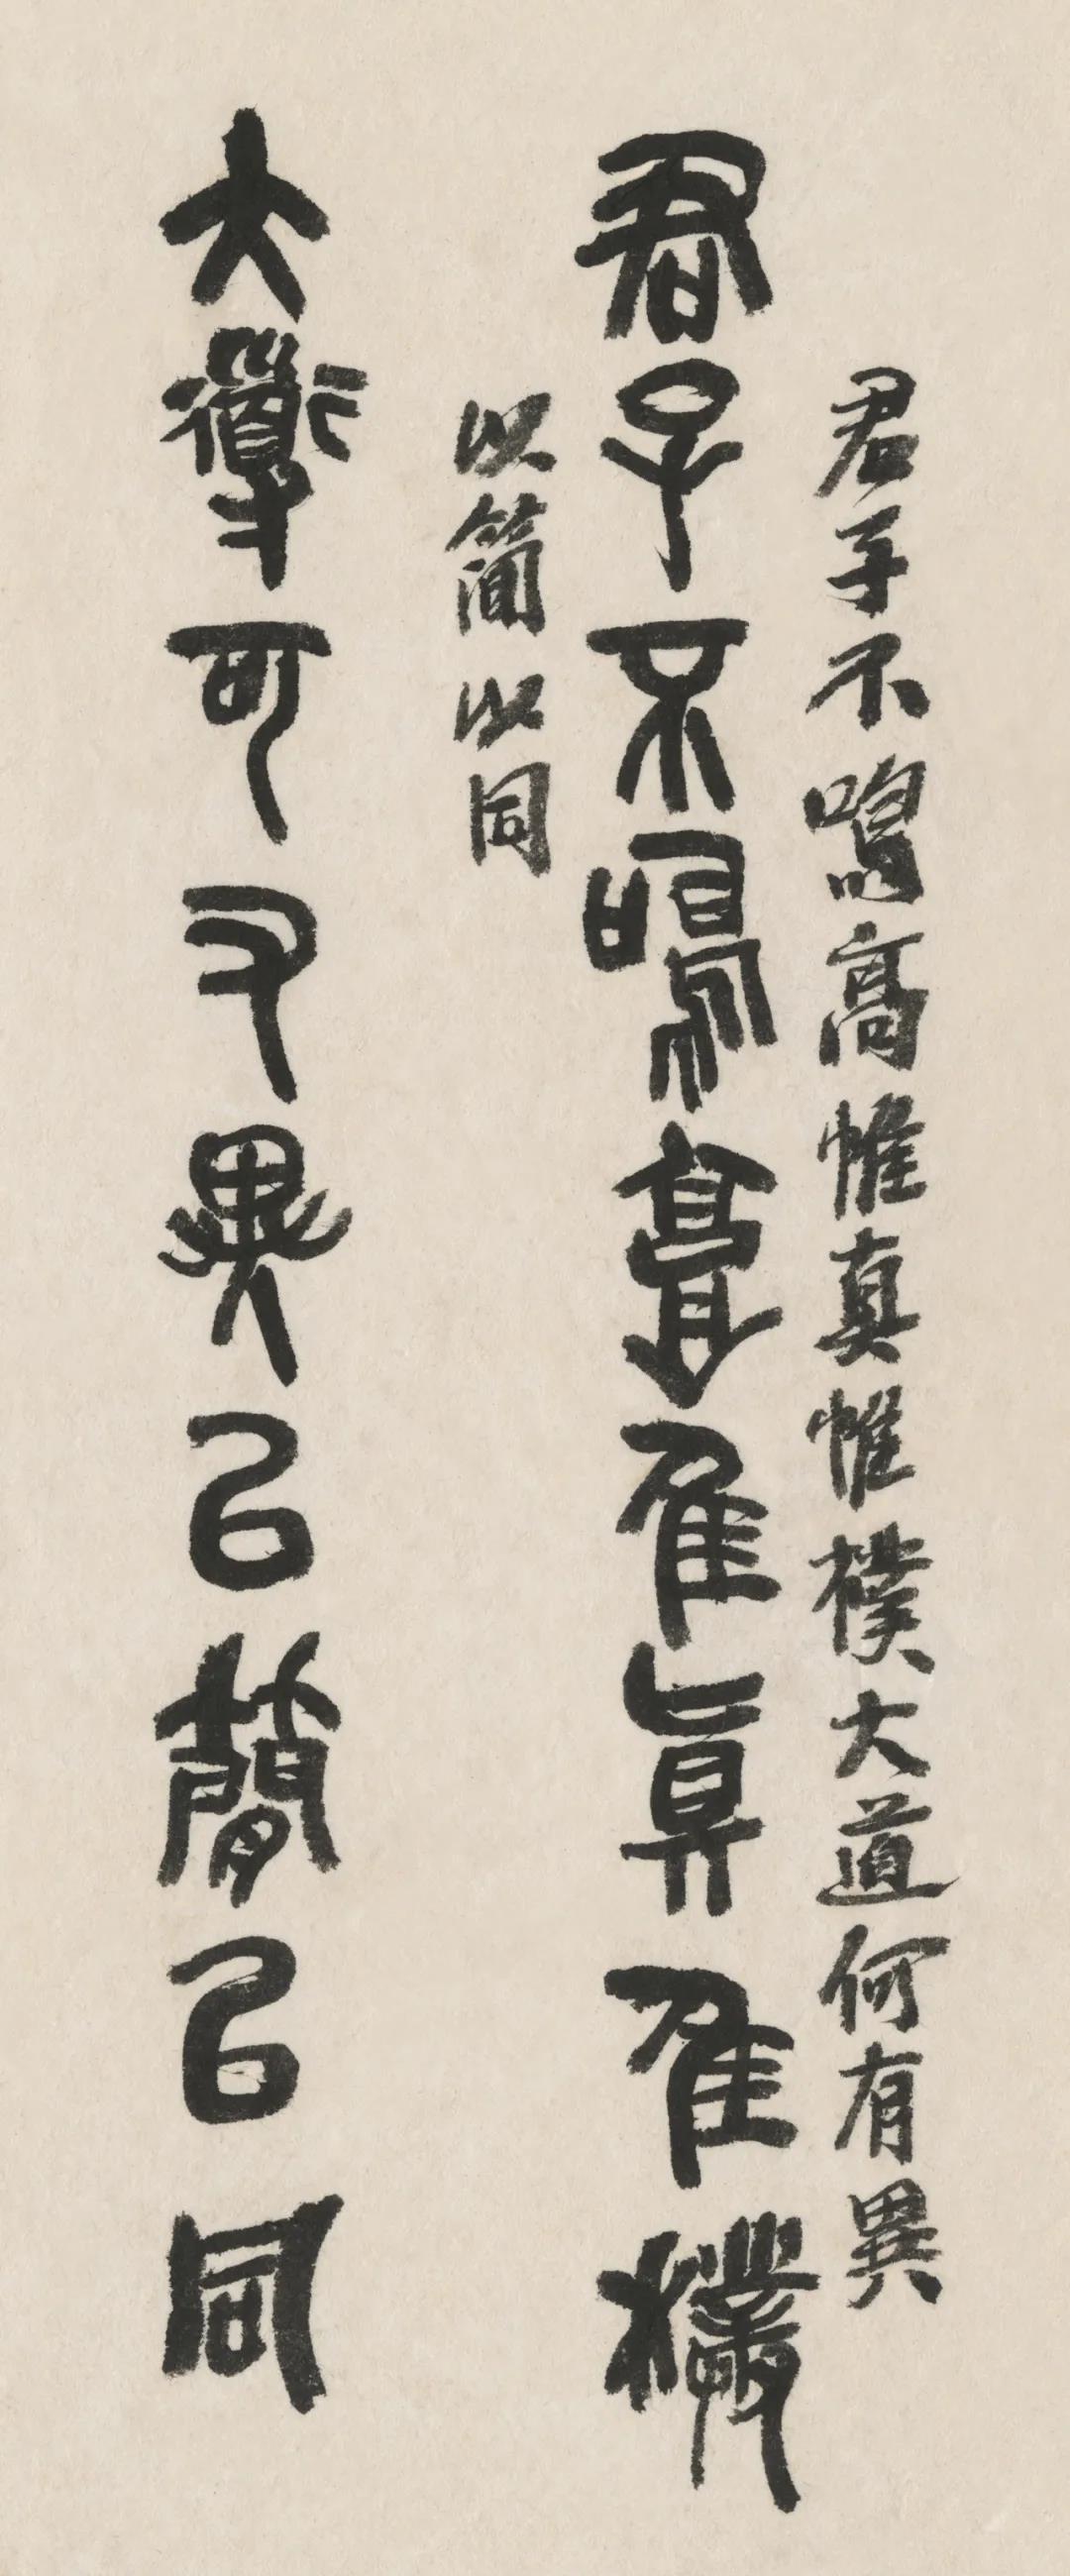 君子不鳴高惟真惟樸大道何有異
君子不鳴高隹真隹樸
以簡以同
大道可又異㠯簡㠯同